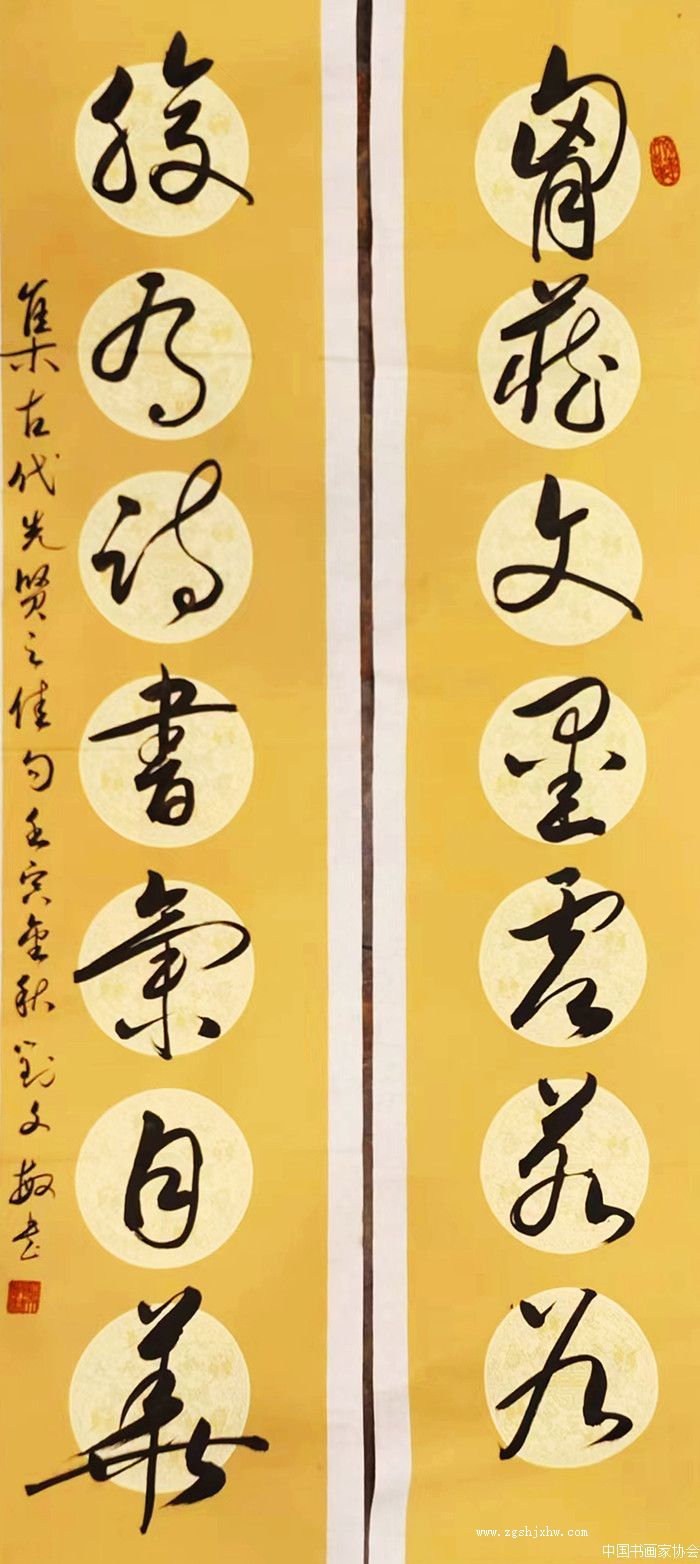 胷藏文墨虚若谷
腹有詩書氣自華
集古代先贤之佳句壬寅金秋劉文敏书
www.zgshjxhw.com
中国书画家协会